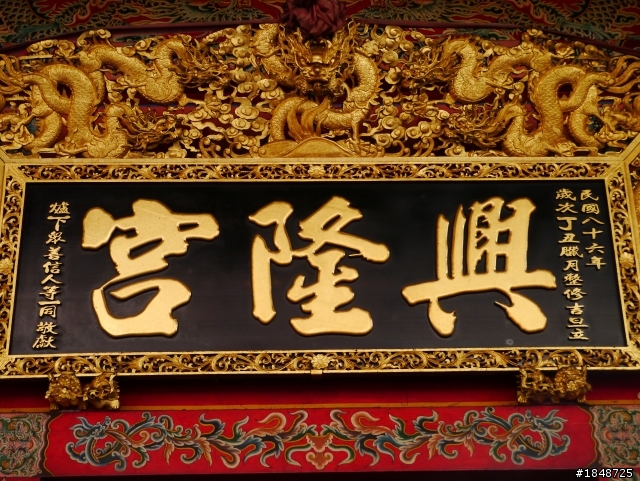 民國八十六年
歲次丁丑臘月整修吉旦立
興隆宮
爐下眾善信人等一同敬獻
#1848725